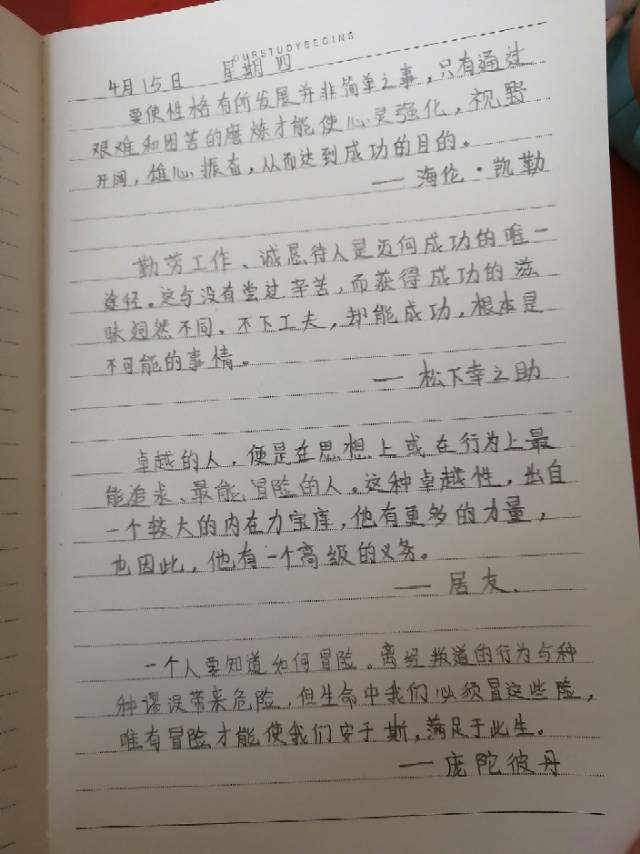 OURSTUDYBEGINS
4月15日 星期四
要使性格有所发展并非简单之事，只有通过
艰难和困苦的磨炼才能使心灵强化，视野
开阔，雄心振奋，从而达到成功的目的。
——海伦·凯勒
勤劳工作、诚恳待人是迈向成功的唯一
途径。这与没有尝过辛苦，而获得成功的滋
味迥然不同。不下工夫，却能成功，根本是
不可能的事情。
——松下幸之助
卓越的人，便是在思想上或在行为上最
能追求、最能冒险的人。这种卓越性，出自
一个较大的内在力宝库，他有更多的力量，
也因此，他有一个高级的义务。
——居友.
一个人要知道如何冒险。离经叛道的行为与种
种谬误带来危险，但生命中我们必须冒这些险，
唯有冒险才能使我们安于斯，满足于此生。
——庞陀彼丹